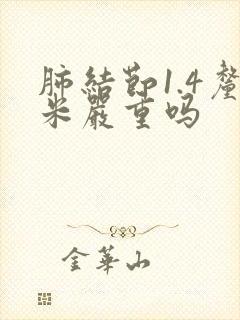 肺結節1.4釐
米嚴重吗
金華山